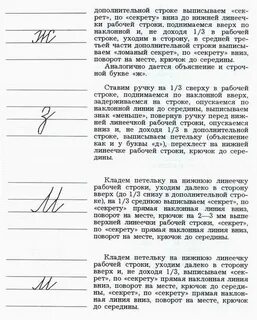 дополнительной строке выписываем «сек-
рет», по «секрету» вниз до нижней линееч-
ки рабочей строки, поднимаемся вверх по
наклонной и, не доходя 1/3 в рабочей
строке, уходим в сторону, в средней тре-
тьей части дополнительной строки выписы-
ваем «ломаный секрет», по «секрету» вниз,
поворот на месте, крючок до середины.
Аналогично дается объяснение и строч-
ной букве «ж».
ж
Ставим ручку на 1/3 сверху в рабочей
строке, поднимаемся по наклонной вверх,
задерживаемся на строке, опускаемся по
наклонной линии до середины, выписываем
знак «меньше», повернув ручку перед ниж-
ней линеечкой рабочей строки, опускаемся
вниз и, не доходя 1/3 в дополнительной
строке, выписываем петельку (объяснение
как и у буквы «д»), перехлест на нижней
линеечке рабочей строки, крючок до сере-
дины.
з
Кладем петельку на нижнюю линеечку
рабочей строки, уходим далеко в сторону
вверх (до 1/3 снизу в дополнительной стро-
ке), на 1/3 среднюю выписываем «секрет»,
по «секрету» прямая наклонная линия вниз,
поворот на месте, крючок на 2—3 мм выше
верхней линеечки рабочей строки, «секрет»,
по «секрету» прямая наклонная линия вниз,
поворот на месте, крючок до середины.
М
Кладем петельку на нижнюю линеечку
рабочей строки, уходим далеко в сторону
вверх и, не доходя 1/3, выписываем «сек-
рет», по «секрету» прямая наклонная линия
вниз, поворот на месте, крючок до середи-
ны, «секрет», по «секрету» прямая наклон-
ная линия вниз, поворот на месте, крючок
до середины.
м